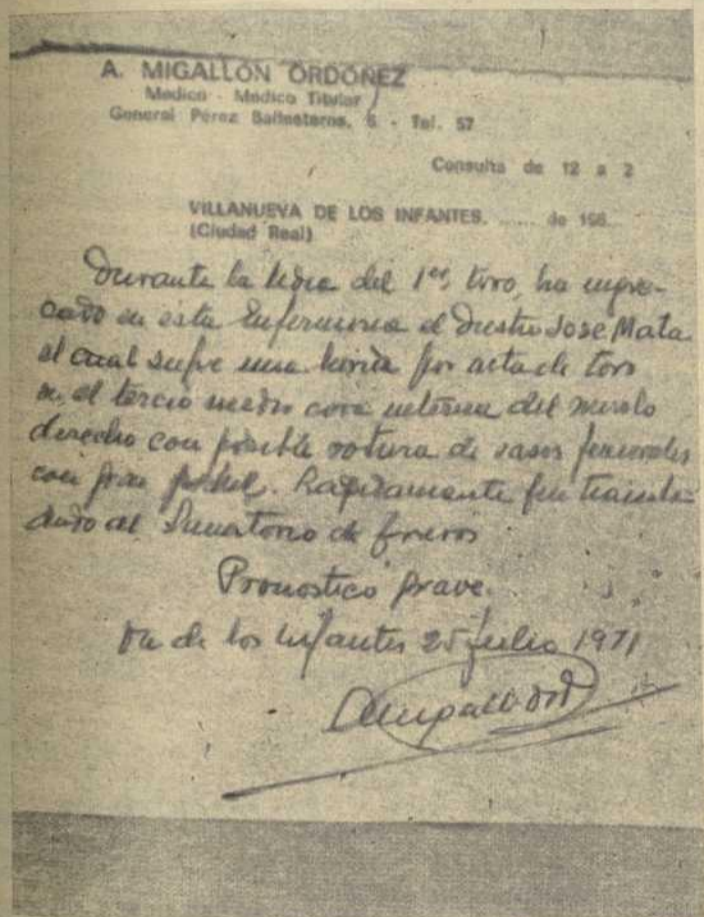 A. MIGALLÓN ORDOÑEZ
Médico - Médico Titular
General Pérez Ballesteros, 6 - Tel. 57
Consulta de 12 a 2
VILLANUEVA DE LOS INFANTES, ...... de 196...
(Ciudad Real)
Durante la lidia del 1er toro, ha ingre-
sado en esta Enfermeria el diestro Jose Mata
el cual sufre una herida por asta de toro
en el tercio medio cara interna del muslo
derecho con posible rotura de vasos femorales
con gran. Rapidamente fue trasla-
dado al Sanatorio de Toreros
Pronostico grave.
Va de los Infantes 25 julio 1971